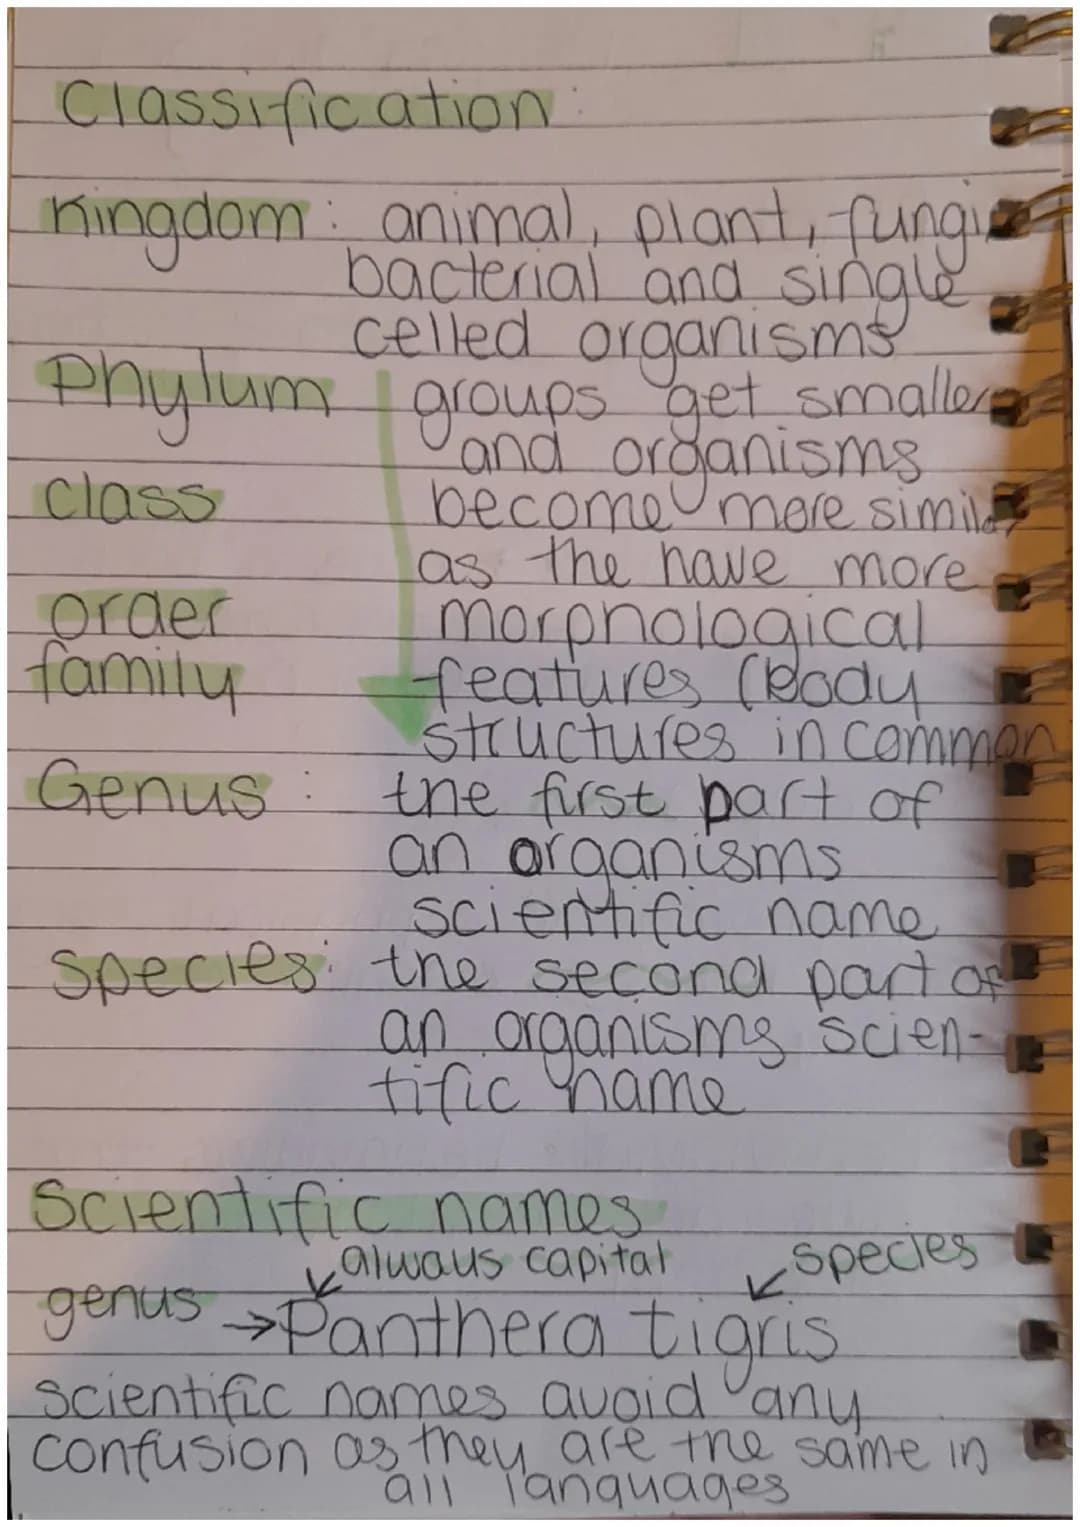 Classification:
Kingdom: animal, plant, fungi
bacterial and single
celled organisms
Phylum groups get smaller
and organisms
class become more similar
as the have more
order morphological
family features (body
structures in common
Genus: the first part of
an organisms
scientific name
species: the second part of
an organisms scien-
tific name
Scientific names
always capital species
genus → Panthera tigris
scientific names avoid any
confusion as they are the same in
all languages